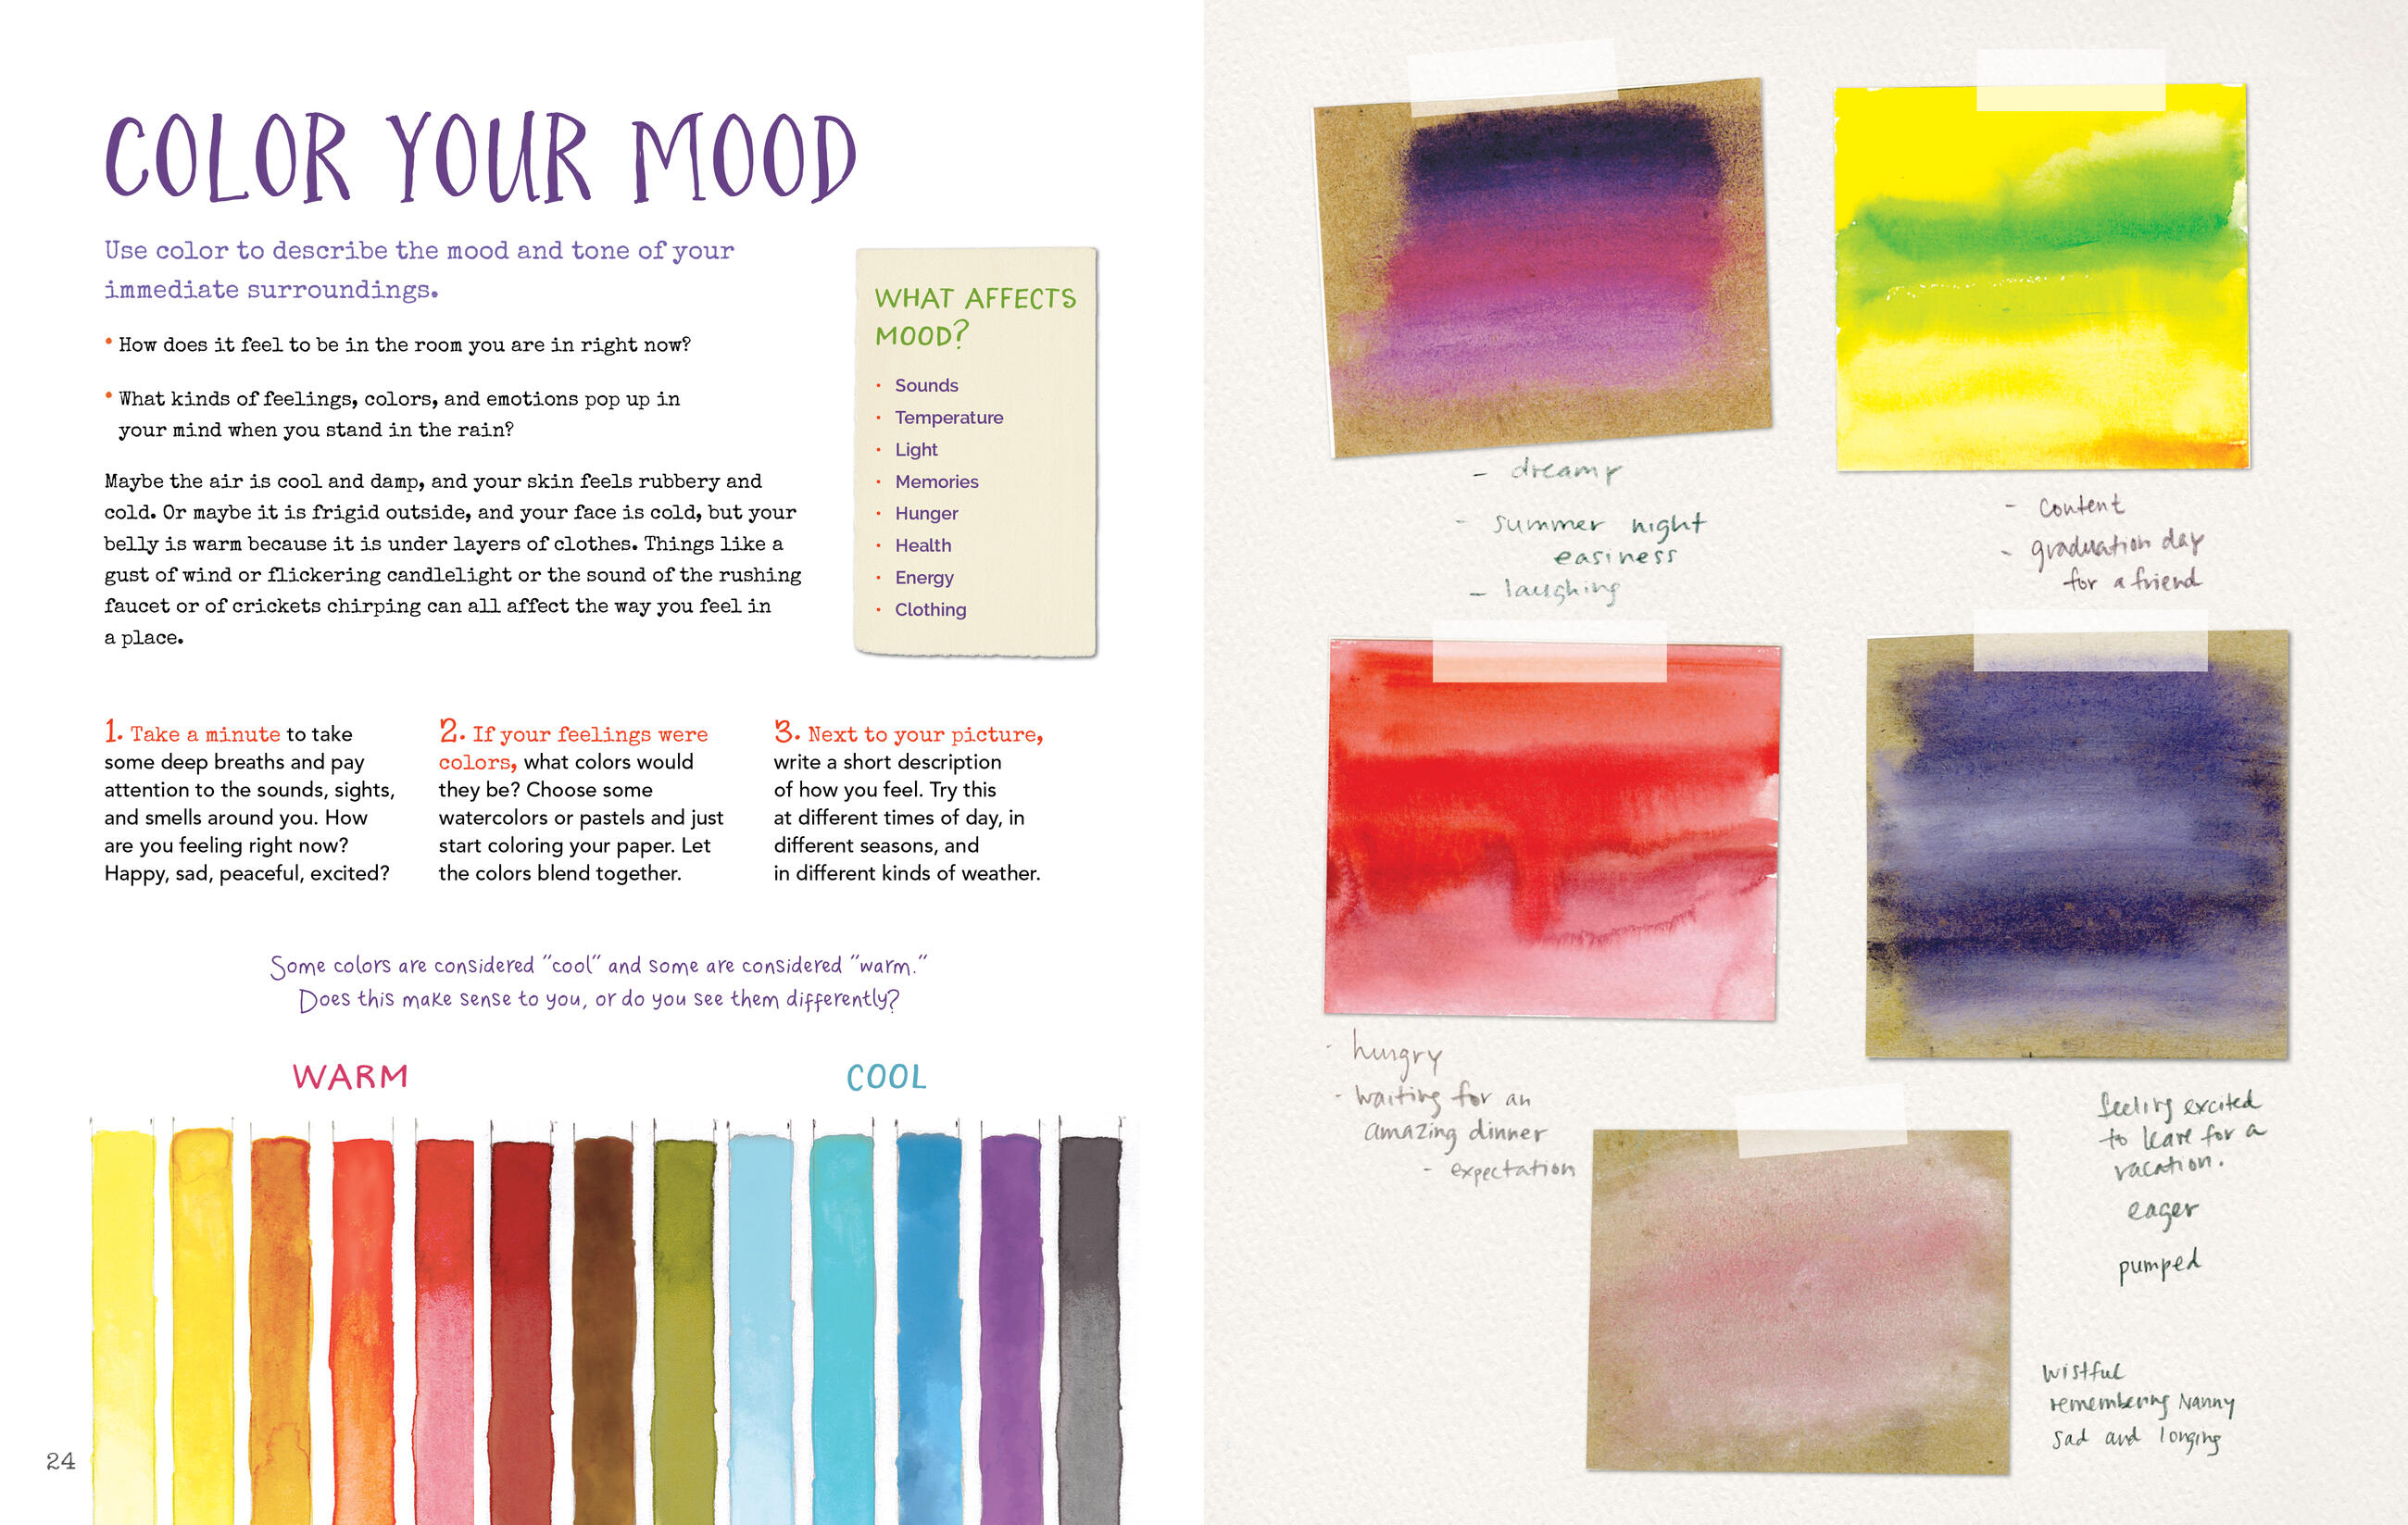 COLOR YOUR MOOD
Use color to describe the mood and tone of your
immediate surroundings.
• How does it feel to be in the room you are in right now?
• What kinds of feelings, colors, and emotions pop up in
your mind when you stand in the rain?
Maybe the air is cool and damp, and your skin feels rubbery and
cold. Or maybe it is frigid outside, and your face is cold, but your
belly is warm because it is under layers of clothes. Things like a
gust of wind or flickering candlelight or the sound of the rushing
faucet or of crickets chirping can all affect the way you feel in
a place.
WHAT AFFECTS
MOOD?
• Sounds
• Temperature
• Light
• Memories
• Hunger
• Health
• Energy
• Clothing
1. Take a minute to take
some deep breaths and pay
attention to the sounds, sights,
and smells around you. How
are you feeling right now?
Happy, sad, peaceful, excited?
2. If your feelings were
colors, what colors would
they be? Choose some
watercolors or pastels and just
start coloring your paper. Let
the colors blend together.
3. Next to your picture,
write a short description
of how you feel. Try this
at different times of day, in
different seasons, and
in different kinds of weather.
Some colors are considered "cool" and some are considered "warm."
Does this make sense to you, or do you see them differently?
WARM
COOL
24
- dreamy
- summer night
easiness
- laughing
- content
- graduation day
for a friend
- hungry
- waiting for an
amazing dinner
- expectation
feeling excited
to leave for a
vacation.
eager
pumped
wistful
remembering Nanny
sad and longing